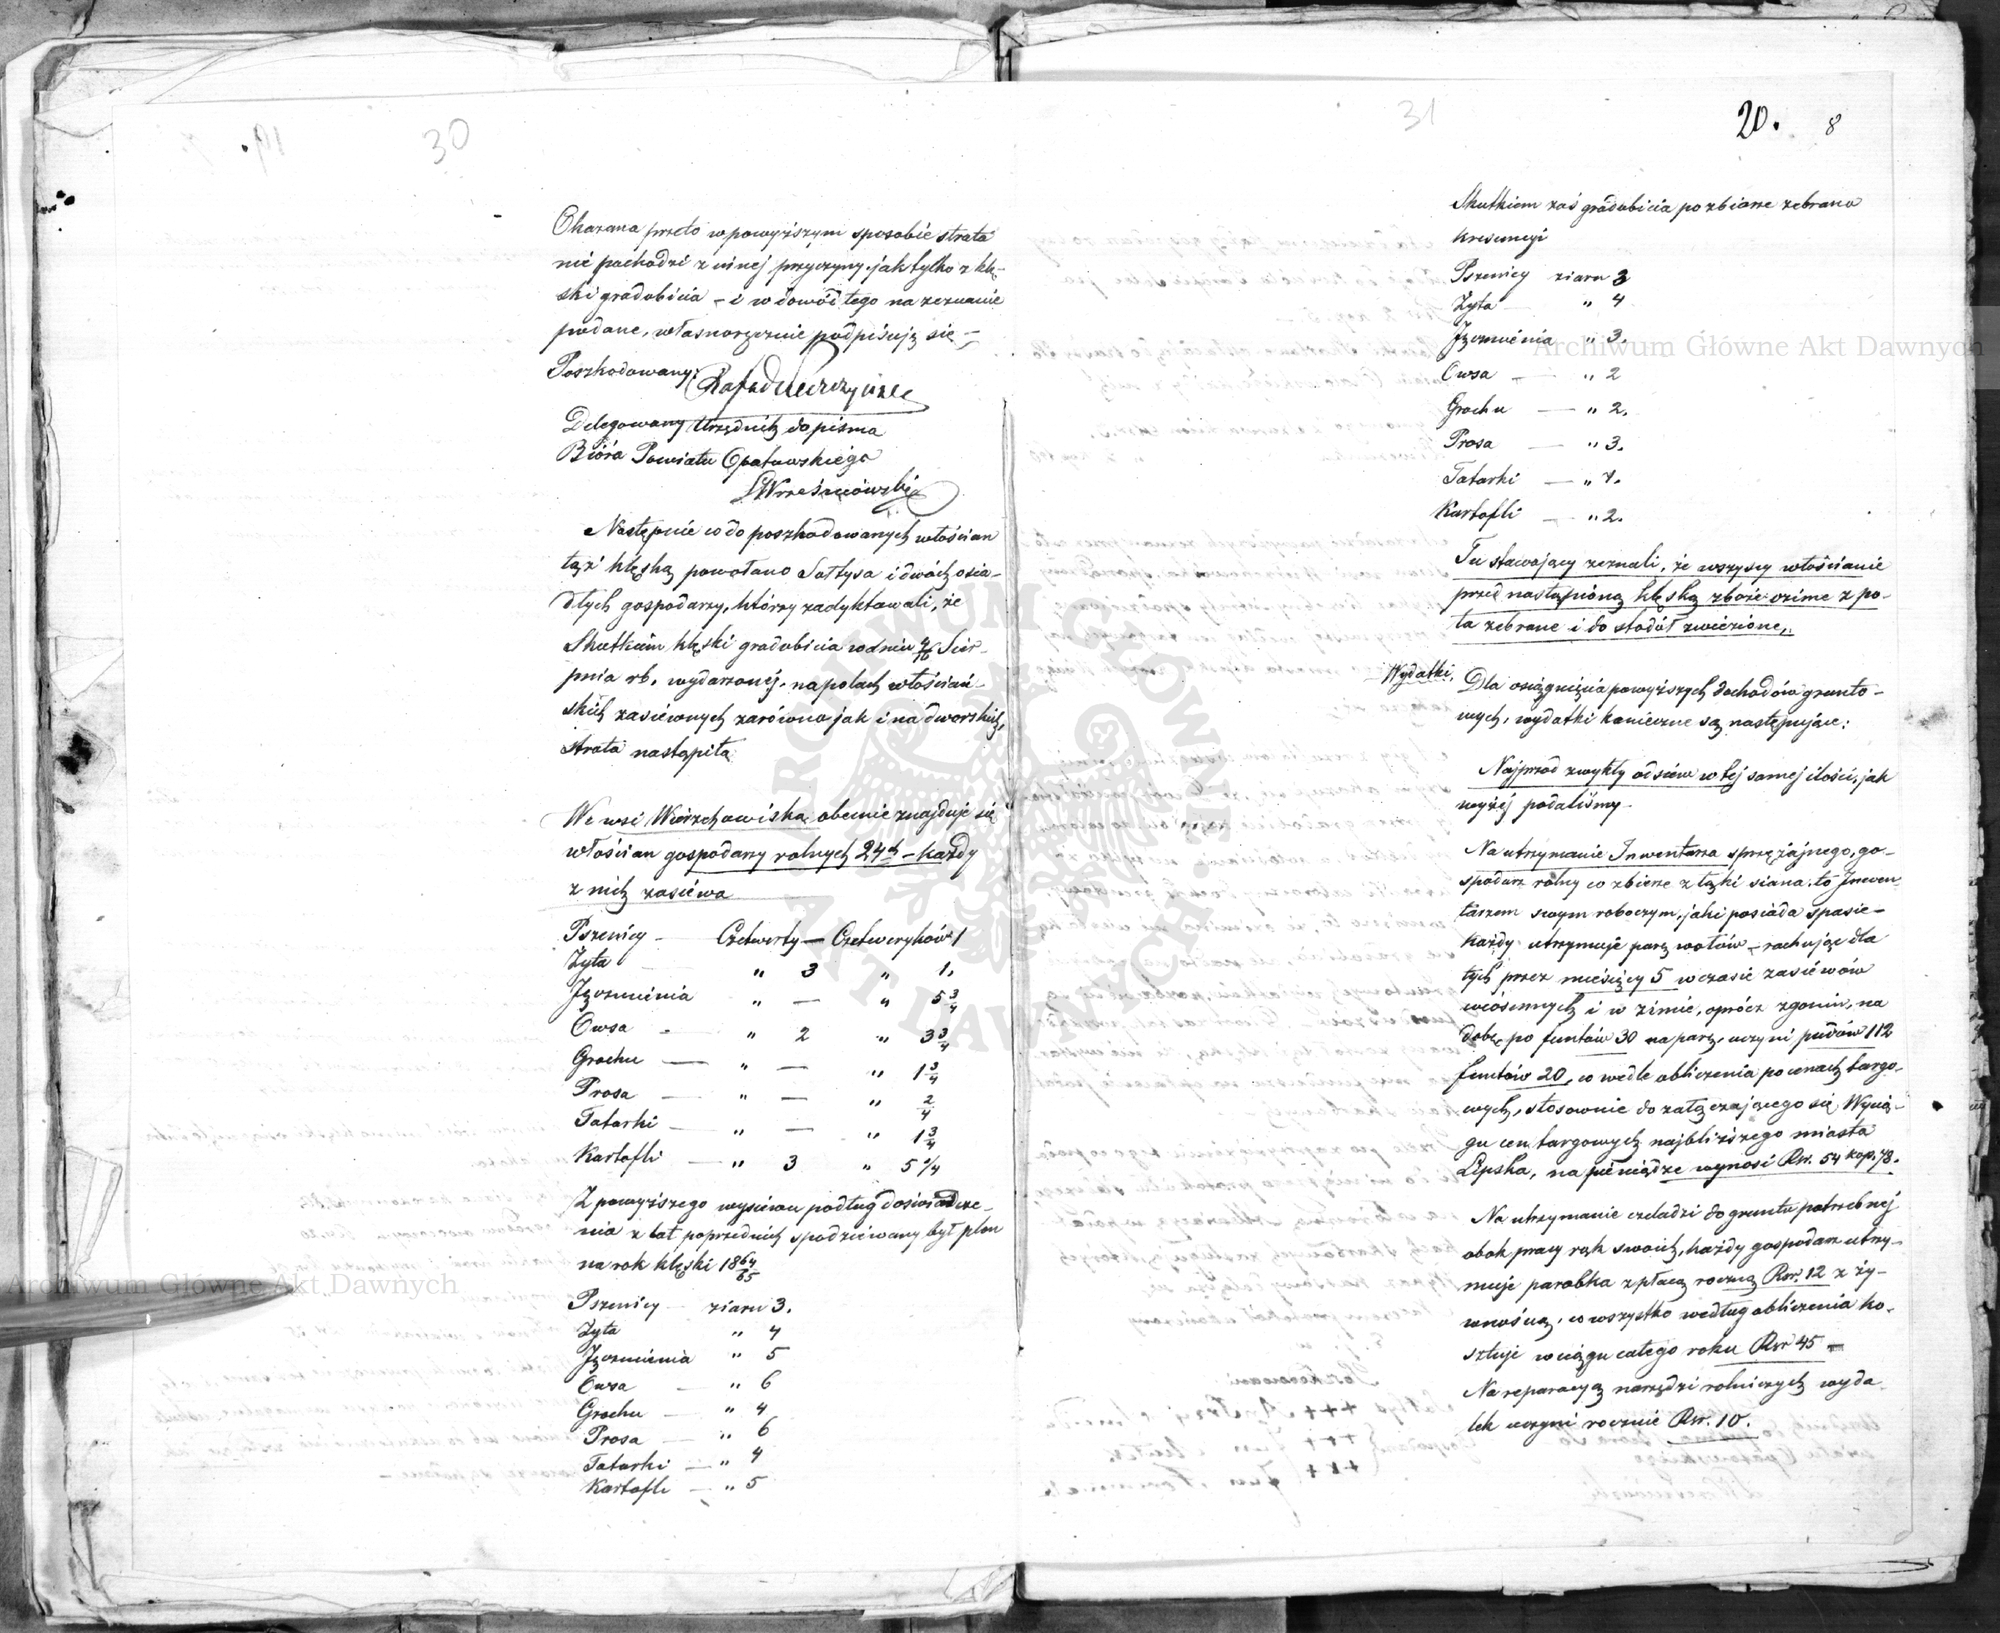 30
Okazana przeto w powyższym sposobie strata
nie pochodzi z innej przyczyny jak tylko z klę-
ski gradobicia – i w dowód tego na zeznanie
podane, własnoręcznie podpisują się –
Poszkodowany:
Delegowany Urzędnik do pisma
Bióra Powiatu Opatowskiego
Następnie co do poszkodowanych włościan
tąż klęską powołano Sołtysa i dwóch osia-
dłych gospodarzy, którzy zadyktowali, że
Skutkiem klęski gradobicia w dniu 4/16 Sier-
pnia rb. wydarzonéj, na polach włościań-
skich zasiéwnych zarówno jak i na dworskich,
strata nastąpiła
We wsi Wierzchowiska obecnie znajduje się
włościan gospodarzy rolnych 24ch – każdy
z nich zasiéwa
Pszenicy – Czetwerty — Czetweryków 1
Żyta „ 3 „ 1.
Jęczmienia „ — „ 5 3/4
Owsa – „ 2 „ 3 3/4
Grochu — „ — „ 1 3/4
Prosa — „ — „ 2/4
Tatarki — „ — „ 1 3/4
Kartofli — „ 3 „ 5 1/4
Z powyższego wysiewu podług doświadcze-
nia z lat poprzednich spodziewany był plon
na rok klęski 18 64/65
Pszenicy — ziarn 3.
Żyta „ 4
Jęczmienia „ 5
Owsa — „ 6
Grochu — „ 4
Prosa — „ 6
Tatarki — „ 4
Kartofli — „ 5
31
20. 8
Skutkiem zaś gradobicia po zbiorze zebrano
krescencyi
Pszenicy ziarn 3
Żyta — „ 4
Jęczmiénia „ 3.
Owsa — „ 2
Grochu — „ 2.
Prosa — „ 3.
Tatarki — „
Kartofli — „ 2.
Tu stawający zeznali, że wszyscy włościanie
przed nastąpioną klęską zboże ozime z po-
la zebrane i do stodół zwiezione,
Wydatki. Dla osiągnięcia powyższych dochodów grunto-
wych, wydatki konieczne są następujące:
Najprzód zwykły odsiew w téj samej ilości, jak
wyżéj podaliśmy.
Na utrzymanie Inwentarza sprzężajnego, go-
spodarz rolny co zbierze z łąki siana, to Inwen-
tarzem swym roboczym, jaki posiada spasie –
każdy utrzymuje parę wołów – rachując dla
tych przez miesięcy 5 w czasie zasiéwów
wiósennych i w zimie, oprócz zgonin, na
dobę po funtów 30 na parę, uczyni pudów 112
funtów 20, co wedle obliczenia po cenach targo-
wych, stosownie do załączającego się Wycią-
gu cen targowych najbliższego miasta
Lipska, na pieniądze wynosi Rsr. 54 kop. 78.
Na utrzymanie czeladzi do gruntu potrzebnej
obok pracy rąk swoich, każdy gospodarz utrzy-
muje parobka z płacą roczną Rsr. 12 z ży-
wnością, co wszystko według obliczenia ko-
sztuje w ciągu całego roku Rsr 45 –
Na reparacyą narzędzi rolniczych wyda-
tek uczyni rocznie Rsr. 10.
Archiwum Główne Akt Dawnych
Archiwum Główne Akt Dawnych
ARCHIWUM GŁÓWNE AKT DAWNYCH